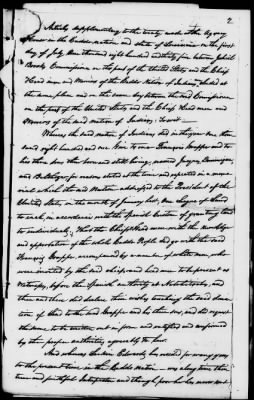 2.
Articles supplementary to the treaty made at the Agency
House in the Caddo Nation and State of Louisiana on the first
day of July One thousand eight hundred and thirty five between Jehiel
Brooks Commissioner on the part of the United States and the Chiefs
Head men and Warriors of the Caddo Nation of Indians, concluded at
the same place, and on the same day between the said Commissioner
on the part of the United States and the Chiefs Head men and
Warriors of the said Nation of Indians, to wit
Whereas the said nation of Indians did in the year one thou-
sand eight hundred and one give to one François Grappe and to
his three sons then born and still living, named Jacques, Dominique,
and Balthazar, for reasons stated at the time and repeated in a memo-
rial which the said nation addressed to the President of the
United States in the month of January last, One league of land
to each, in accordance with the Spanish custom of granting land
to individuals; That the Chiefs and Head men with the knowledge
and approbation of the whole Caddo People did go with the said
François Grappe, accompanied by a number of white men, who
were invited by the said chiefs and head men to be present as
witnesses, before the Spanish authorities at Natchitoches, and
then and there did declare their wishes touching the said dona-
tion of land to the said Grappe and his three sons, and did request
the same to be written out in form and ratified and confirmed
by the proper authorities agreeably to law.
And whereas Larkin Edwards has resided for many years
to the present time in the Caddo Nation — was a long time their
true and faithful Interpreter and though poor he has never sent